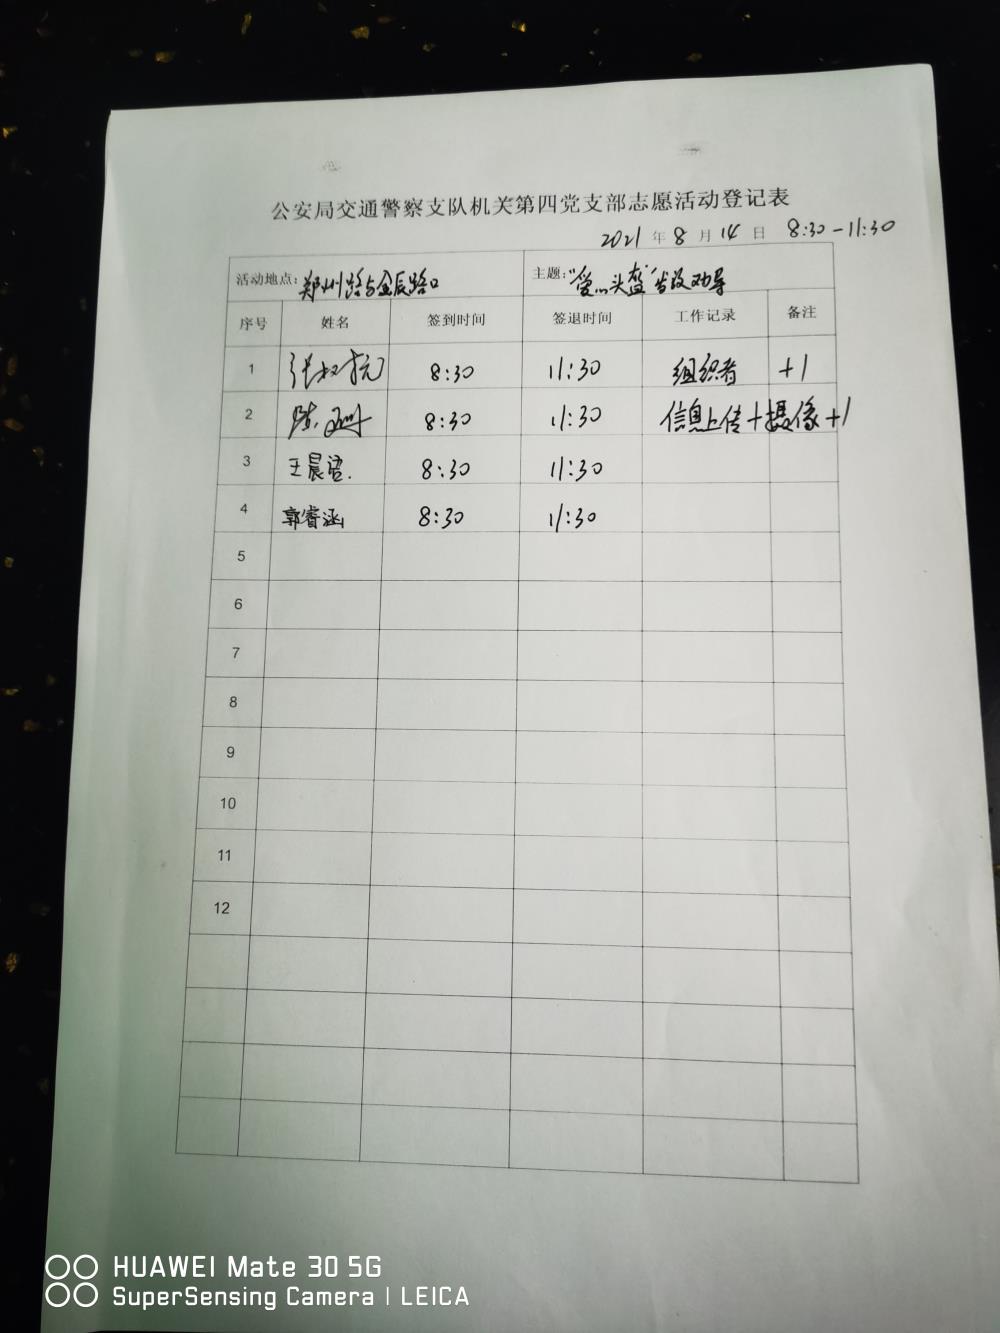 公安局交通警察支队机关第四党支部志愿活动登记表
2021 年 8 月 14 日 8:30-11:30
活动地点: 郑州路与金辰路口 主题: "爱心头盔"发放劝导
序号 姓名 签到时间 签退时间 工作记录 备注
1 张 8:30 11:30 组织者 +1
2 陈 8:30 11:30 信息上传+摄像+1
3 王晨语. 8:30 11:30
4 郭睿涵 8:30 11:30
5
6
7
8
9
10
11
12
HUAWEI Mate 30 5G
SuperSensing Camera | LEICA